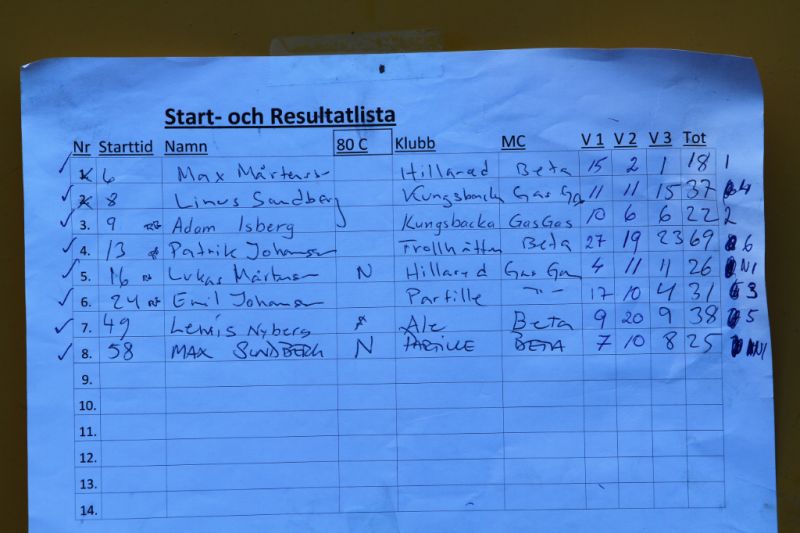 Start- och Resultatlista
Nr Starttid Namn 80 C Klubb MC V 1 V 2 V 3 Tot
1. 6 Max Mårtensson Hillared Beta 15 2 1 18 1
2. 8 Linus Sandberg Kungsbacka Gas Gas 11 11 15 37 4
3. 9 Adam Isberg Kungsbacka GasGas 10 6 6 22 2
4. 13 Patrik Johansson Trollhättan Beta 27 19 23 69 6
5. 16 Lukas Mårtensson N Hillared Gas Gas 4 11 11 26 N1
6. 24 Emil Johansson Partille -"- 17 10 4 31 3
7. 49 Lewis Nyberg Ale Beta 9 20 9 38 5
8. 58 MAX SUNDBERG N PARTILLE BETA 7 10 8 25
9.
10.
11.
12.
13.
14.